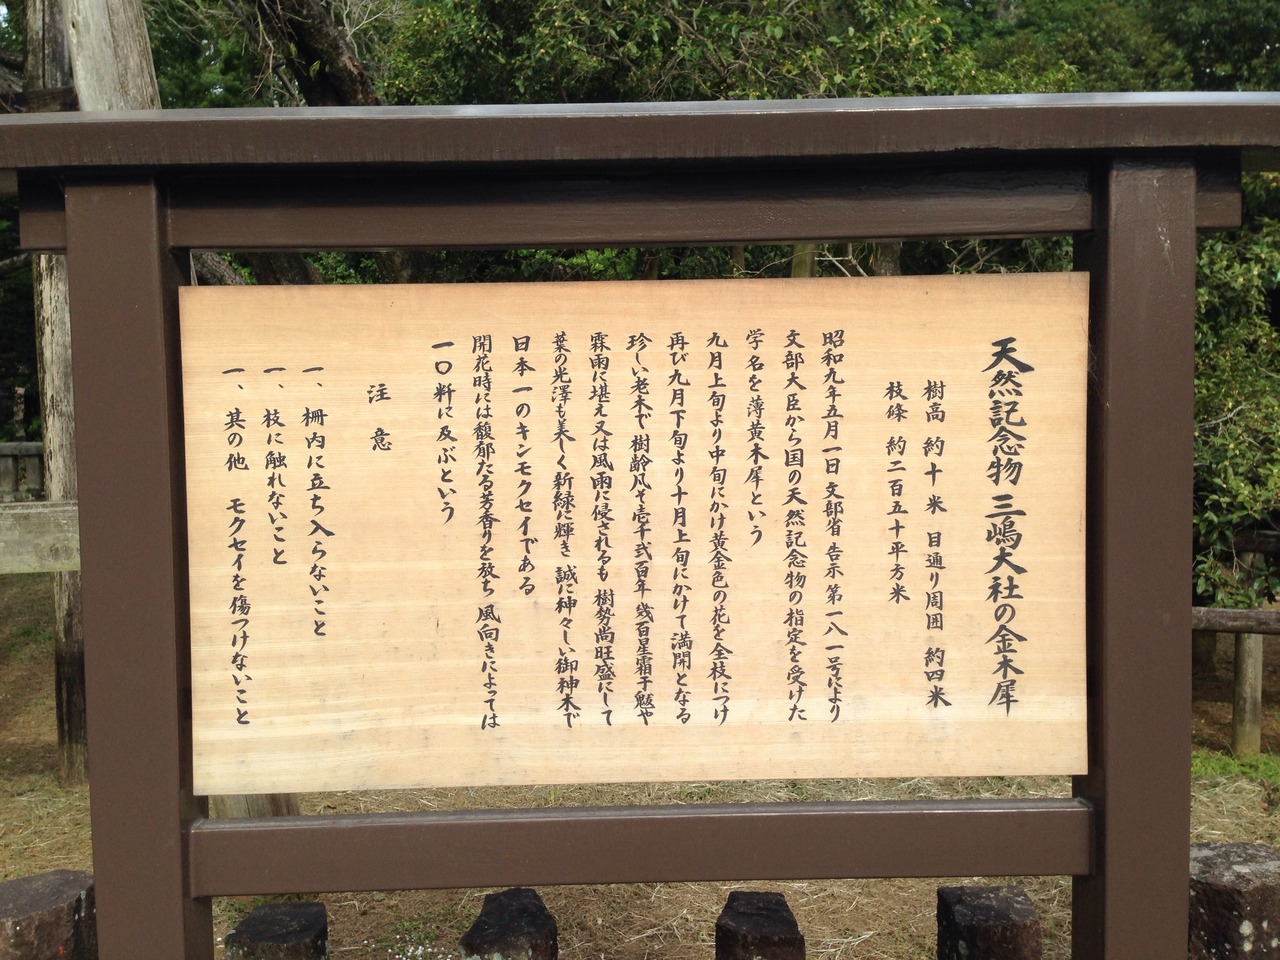 天然記念物 三嶋大社の金木犀
樹高 約十米 目通り周囲 約四米
枝條 約二百五十平方米
昭和九年五月一日 文部省 告示第一八一号により
文部大臣から国の天然記念物の指定を受けた
学名を薄黄木犀という
九月上旬より中旬にかけ黄金色の花を全枝につけ
再び九月下旬より十月上旬にかけて満開となる
珍しい老木で 樹齢凡そ壱千弐百年 幾百星霜干魃や
霖雨に堪え又は風雨に侵されるも 樹勢尚旺盛にして
葉の光澤も美しく新緑に輝き 誠に神々しい御神木で
日本一のキンモクセイである
開花時には馥郁たる芳香りを放ち 風向きによっては
一〇粁に及ぶという
注 意
一、 柵内に立ち入らないこと
一、 枝に触れないこと
一、 其の他 モクセイを傷つけないこと